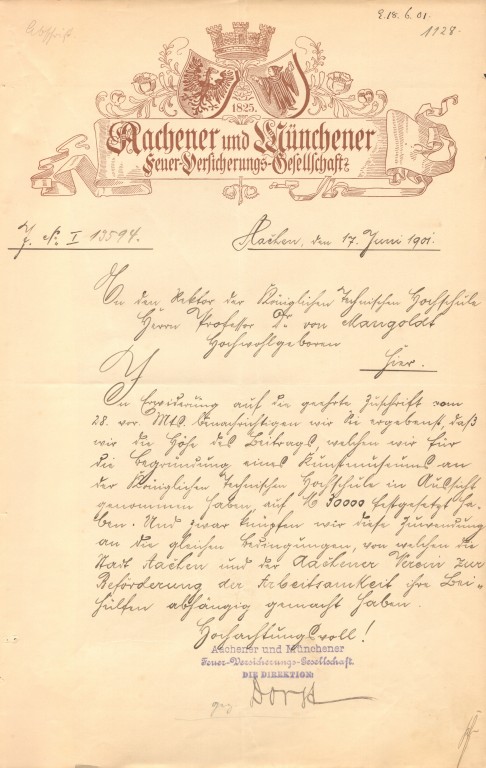 Abschrift
E. 18. 6. 01.
1128.
1825.
Aachener und Münchener
Feuer-Versicherungs-Gesellschaft
J. No. I 13594.
Aachen, den 17. Juni 1901.
An den Rektor der Königlichen Technischen Hochschule
Herrn Professor Dr. von Mangoldt
Hochwohlgeboren
Hier.
In Erwiderung auf die geehrte Zuschrift vom
28. vor. Mts. benachrichtigen wir Sie ergebenst, daß
wir die Höhe des Beitrags, welchen wir für
die Begründung eines Kunstmuseums an
der Königlichen Technischen Hochschule in Aussicht
genommen haben, auf M 30000 festgesetzt ha-
ben. Und zwar knüpfen wir diese Zuwendung
an die gleichen Bedingungen, von welchen die
Stadt Aachen und der Aachener Verein zur
Beförderung der Arbeitsamkeit ihre Bei-
hülfen abhängig gemacht haben.
Hochachtungsvoll!
Aachener und Münchener
Feuer-Versicherungs-Gesellschaft.
DIE DIREKTION:
gez